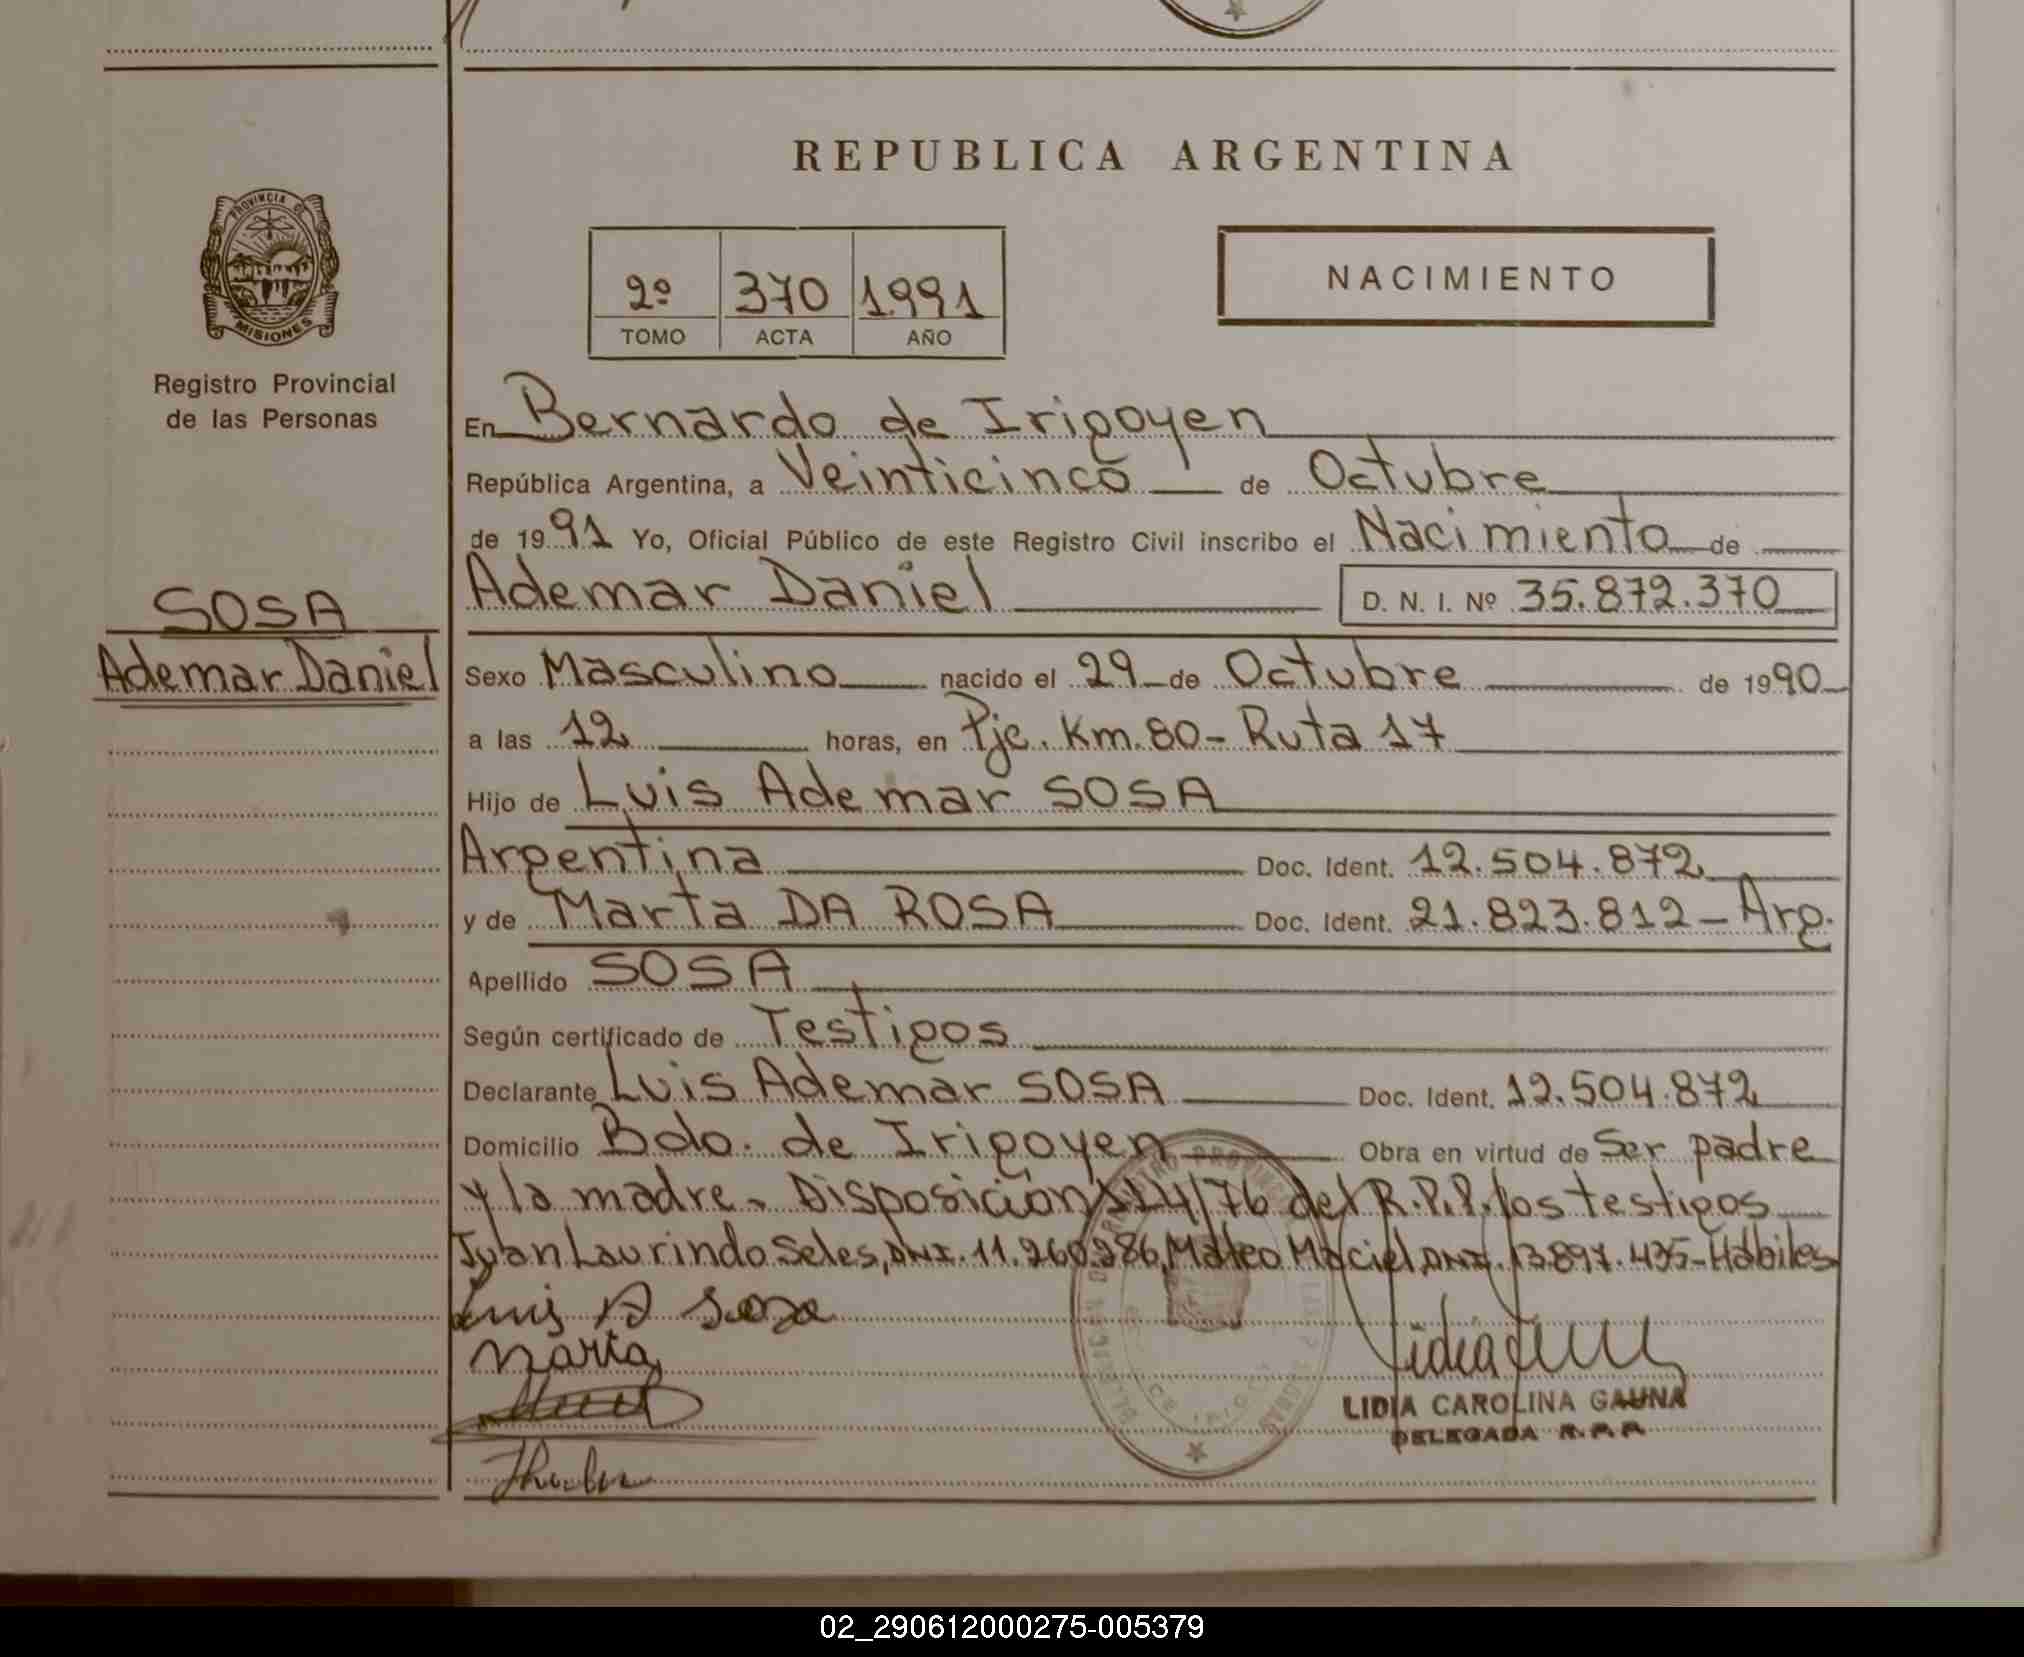 REPUBLICA ARGENTINA
PROVINCIA DE
MISIONES
Registro Provincial
de las Personas
2º 370 1991
TOMO ACTA AÑO
NACIMIENTO
En Bernardo de Irigoyen
República Argentina, a Veinticinco de Octubre
de 1991 Yo, Oficial Público de este Registro Civil inscribo el Nacimiento de
Ademar Daniel D. N. I. Nº 35.872.370
SOSA
Ademar Daniel
Sexo Masculino nacido el 29 de Octubre de 1990
a las 12 horas, en Pje. Km. 80 - Ruta 17
Hijo de Luis Ademar SOSA
Argentina Doc. Ident. 12.504.872
y de Marta DA ROSA Doc. Ident. 21.823.812 - Arg.
Apellido SOSA
Según certificado de Testigos
Declarante Luis Ademar SOSA Doc. Ident. 12.504.872
Domicilio Bdo. de Irigoyen Obra en virtud de Ser padre
y la madre - Disposición 114/76 del R.P.P. los testigos
Juan Laurindo Seles, DNI. 11.260.286, Mateo Maciel, DNI. 13.897.435 - Hábiles
Luis A Sosa
Marta
LIDIA CAROLINA GAUNA
DELEGADA R.P.P.
02_290612000275-005379